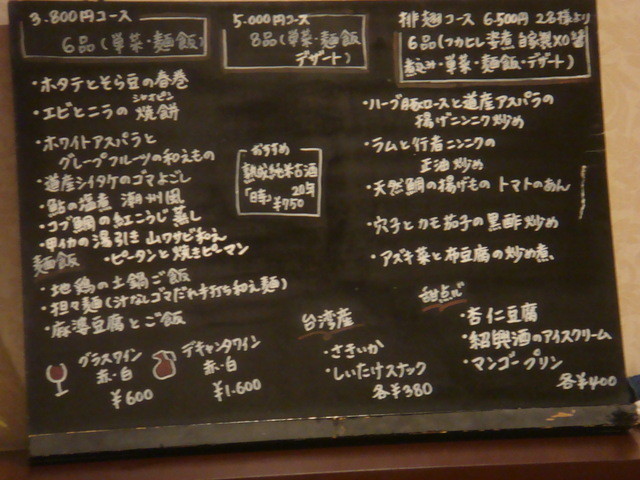 3.800円コース
6品(単菜・麺飯)
5.000円コース
8品(単菜・麺飯
デザート)
排翅コース 6.500円 2名様より
6品(フカヒレ姿煮 自家製XO醤
煮込み・単菜・麺飯・デザート)
・ホタテとそら豆の春巻
シャオピン
・エビとニラの焼餅
・ホワイトアスパラと
グレープフルーツの和えもの
・道産シイタケのゴマよごし
・鮎の塩煮 潮州風
・コブ鯛の紅こうじ蒸し
・甲イカの湯引き 山ワサビ和え
・ピータンと焼きピーマン
麺飯
・地鶏の土鍋ご飯
・担々麺(汁なしゴマだれ手打ち和え麺)
・麻婆豆腐とご飯
グラスワイン
赤・白
¥600
デキャンタワイン
赤・白
¥1.600
おすすめ
熟成純米古酒
20年
¥750
・ハーブ豚ロースと道産アスパラの
揚げニンニク炒め
・ラムと行者ニンニクの
豆油炒め
・天然鯛の揚げもの トマトのあん
・穴子とカモ茄子の黒酢炒め
・アズキ菜と布豆腐の炒め煮、
台湾産
・さきいか
・しいたけスナック
各¥380
甜点心
・杏仁豆腐
・紹興酒のアイスクリーム
・マンゴープリン
各¥400